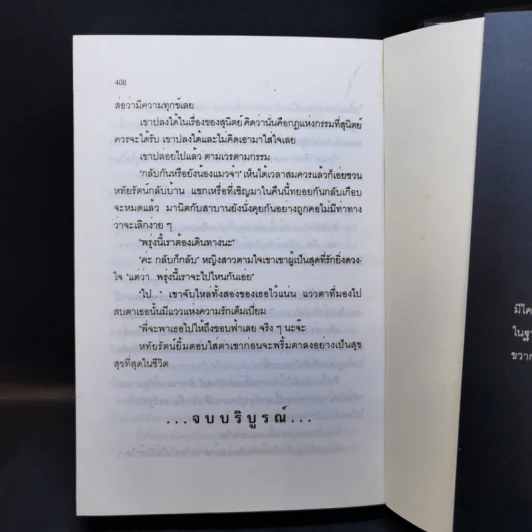 408
ส่อว่ามีความทุกข์เลย
เขาปลงได้ในเรื่องของสุนิตย์ คิดว่านั่นคือกฎแห่งกรรมที่สุนิตย์
ควรจะได้รับ เขาปลงได้และไม่คิดเอามาใส่ใจเลย
เขาปล่อยไปแล้ว ตามเวรตามกรรม
"กลับกันหรือยังน้องแมวจ๋า" เห็นได้เวลาสมควรแล้วก็เอ่ยชวน
หทัยรัตน์กลับบ้าน แขกเหรื่อที่เชิญมาในคืนนี้ทยอยกันกลับเกือบ
จะหมดแล้ว มานิตกับสาบานยังนั่งคุยกันอย่างถูกคอไม่มีท่าทาง
ว่าจะเลิกง่าย ๆ
"พรุ่งนี้เราต้องเดินทางนะ"
"ค่ะ กลับก็กลับ" หญิงสาวตามใจเขาเขาผู้เป็นสุดที่รักยิ่งดวง
ใจ "แต่ว่า พรุ่งนี้เราจะไปไหนกันเอ่ย"
"ไป..." เขาจับไหล่ทั้งสองของเธอไว้แน่น แววตาที่มองไป
สบตาเธอนั้นมีแววแห่งความรักเต็มเปี่ยม
"พี่จะพาเธอไปให้ถึงขอบฟ้าเลย จริง ๆ นะจ๊ะ
หทัยรัตน์ยิ้มตอบใส่ตาเขาก่อนจะพริ้มตาลงอย่างเป็นสุข
สุขที่สุดในชีวิต
...จบบริบูรณ์...
มีใค
ในฐ
ขวาก